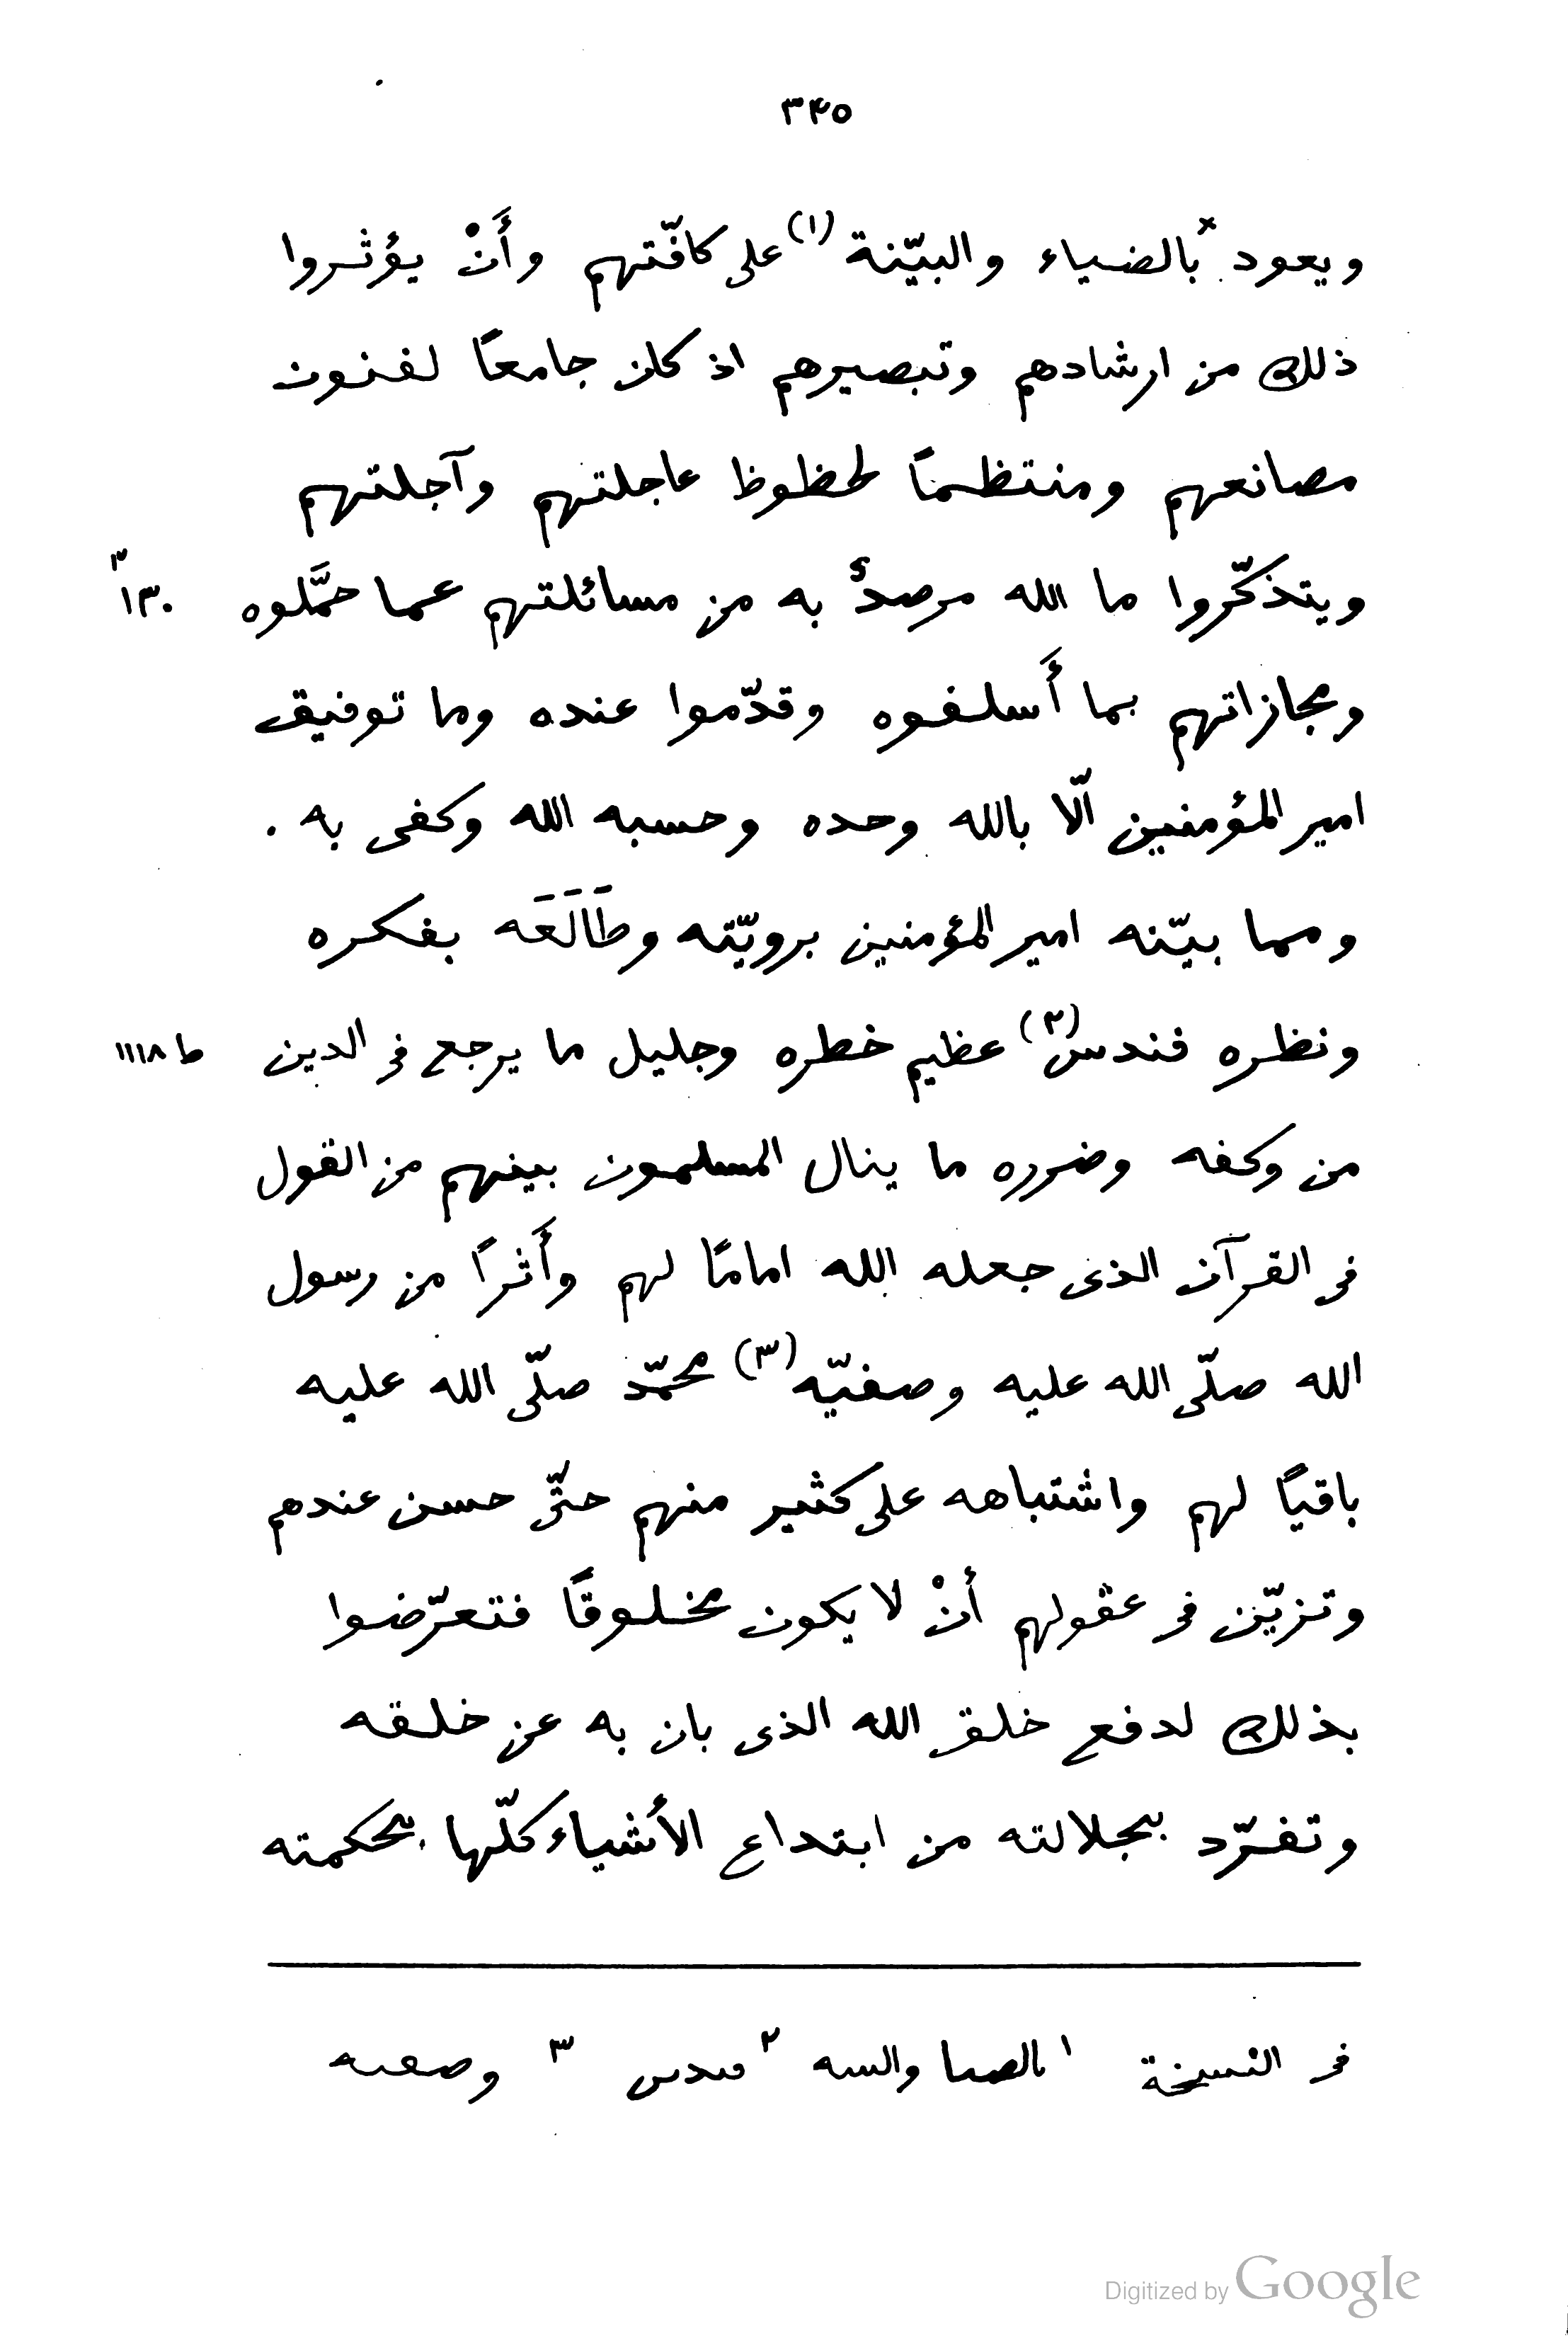 ٣٤٥
ويعود بالضياء والبيّنة (١) على كافّتهم وأَنْ يؤثروا
ذلك من ارشادهم وتبصيرهم اذ كان جامعًا لفنون
مصانعهم ومنتظمًا لحظوظ عاجلتهم وآجلتهم
ويتذكّروا ما الله مرصدٌ به من مسائلتهم عما حمَّلوه ١٣٠
ومجازاتهم بما أَسلفوه وقدّموا عنده وما توفيق
امير المؤمنين الّا بالله وحده وحسبه الله وكفى به .
ومما بيّنه امير المؤمنين برويّته وطَالَعَه بفكره
ونظره فندس (٢) عظيم خطره وجليل ما يرجع فى الدين ط ١١١٨
من وكفه وضرره ما ينال المسلمون بينهم من القول
فى القرآن الذى جعله الله امامًا لهم وأَثرًا من رسول
الله صلّى الله عليه وصفيّه (٣) محمّد صلّى الله عليه
باقيًا لهم واشتباهه على كثير منهم حتّى حسن عندهم
وتزيّن فى عقولهم أنْ لا يكون مخلوقًا فتعرّضوا
بذلك لدفع خلق الله الذى بان به عن خلقه
وتفرّد بجلالته من ابتداع الأشياء كلّها بحكمته
فى النسخة ١ ٮالصىا والسه ٢ ڡىدس ٣ وصڡىه
Digitized by Google